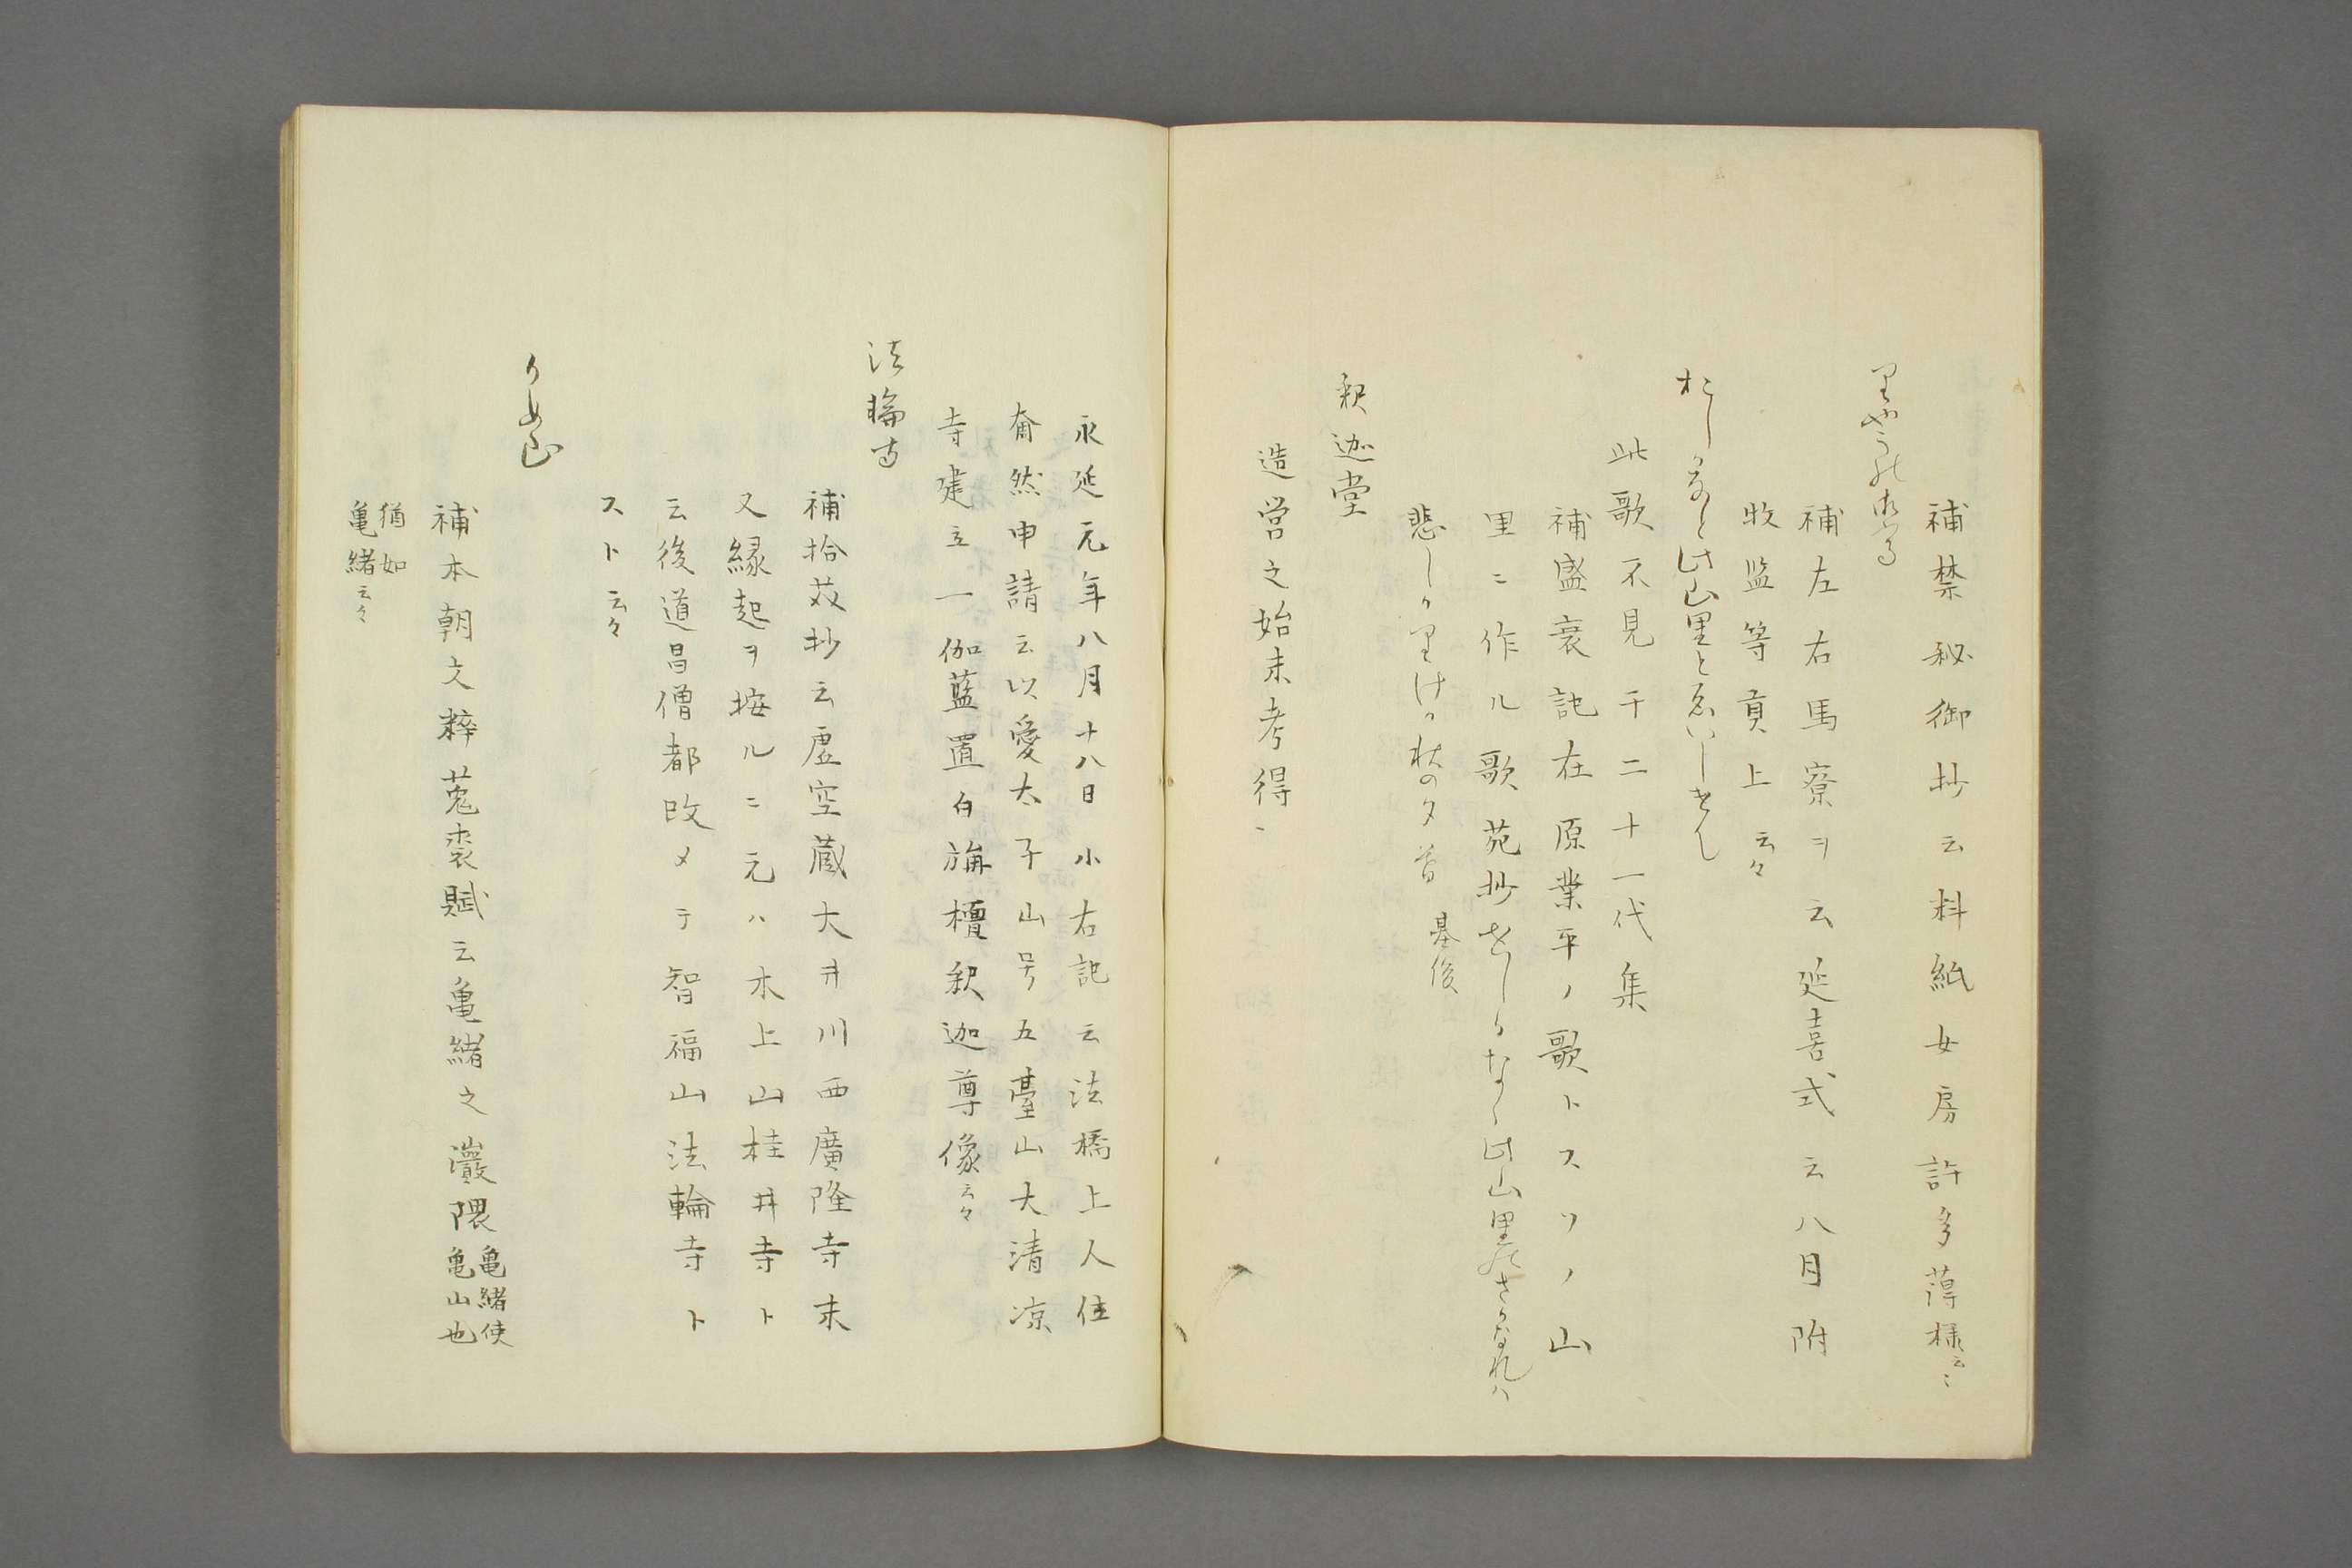 補禁秘御抄云料紙女房許多薄様云〻
りやうの御馬
補左右馬寮ヲ云延喜式云八月附
牧监等貢上云々
おしかなと此山里と
此歌不見于二十一代集
補盛衰記在原業平ノ歌トスソノ山
里ニ作ル歌苑抄をしかなく此山里のさかなれハ
悲しかりける秋の夕昏 基俊
釈迦堂
造営之始末考得、
永延元年八月十八日小右記云法橋上人位
奝然申請云以愛太子山号五臺山大清凉
寺建立一伽藍置白旃檀釈迦尊像云々
法輪寺
補拾芥抄云虚空蔵大井川西廣隆寺末
又縁起ヲ按ルニ元ハ木上山桂井寺ト
云後道昌僧都改メテ智福山法輪寺ト
スト云々
かめ山
補本朝文粹菟裘賦云亀緒之巖隈亀緒使
亀山也
猶如
亀緒云々